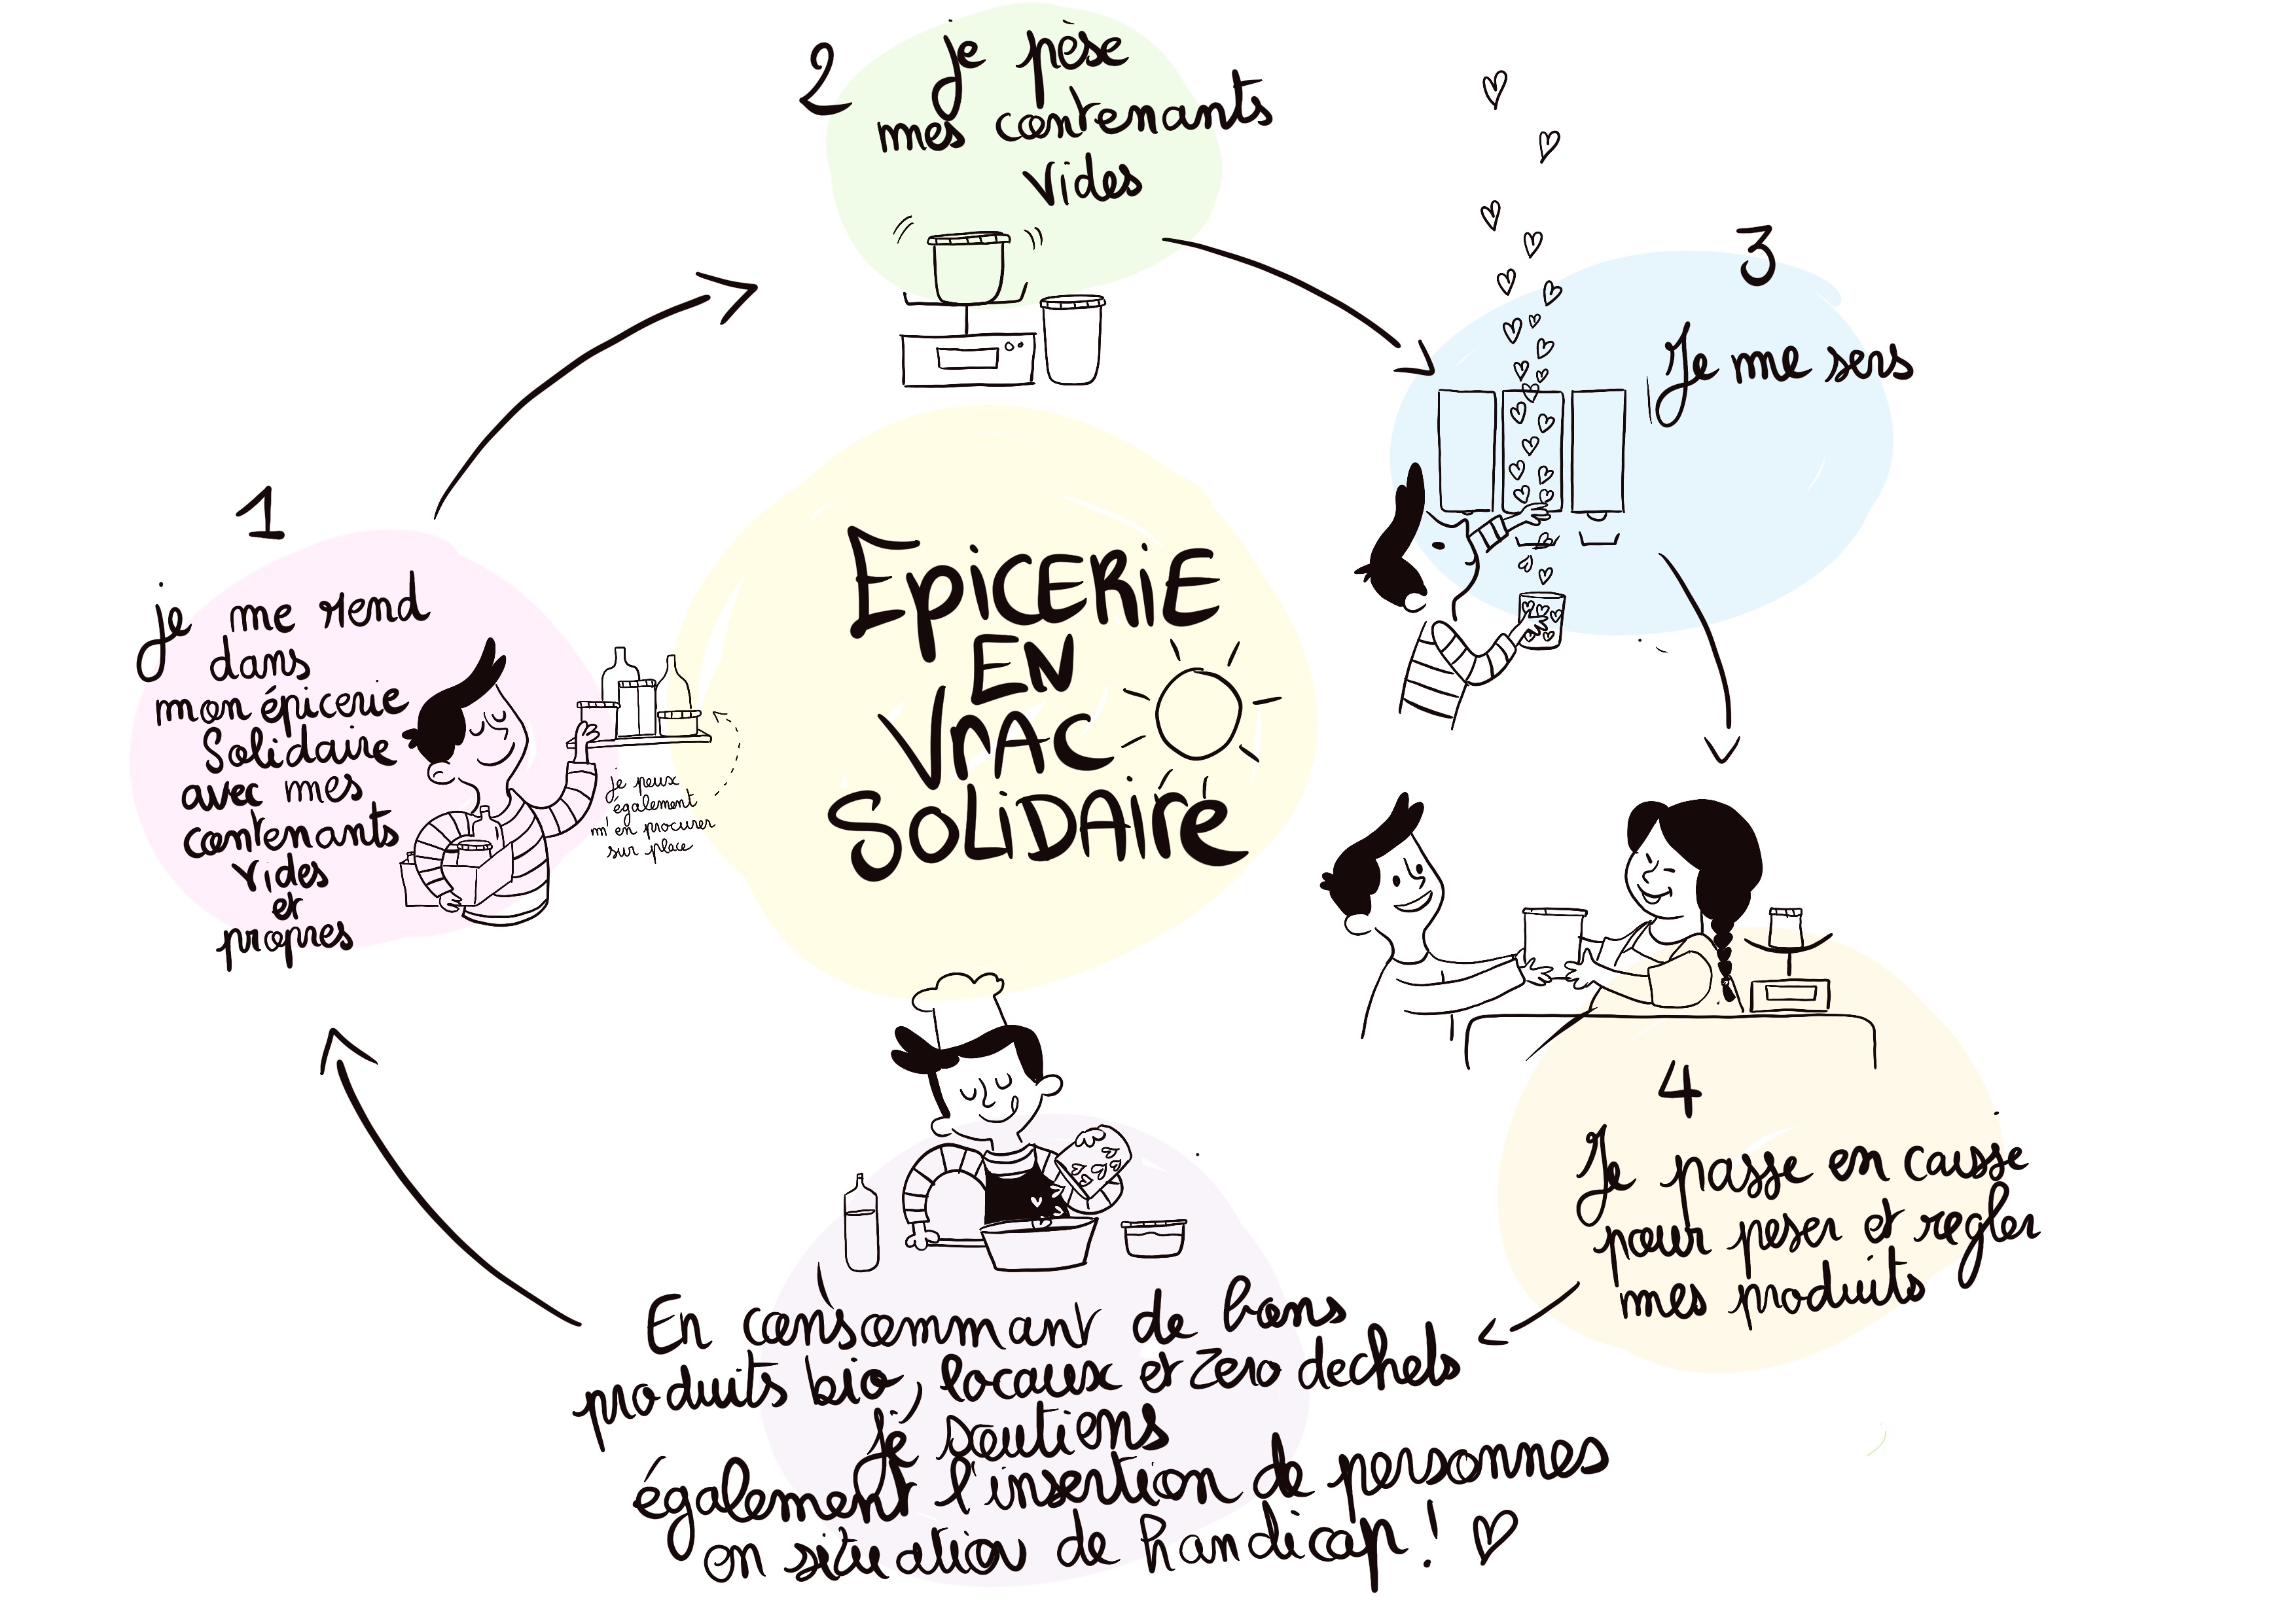 Epicerie
en
vrac
solidaire
1
je me rend
dans
mon épicerie
Solidaire
avec mes
contenants
vides
et
propres
je peux
également
m'en procurer
sur place
2
je pèse
mes contenants
vides
3
Je me sers
4
Je passe en caisse
pour peser et regler
mes produits
En consommant de bons
produits bio, locaux et zero dechets
je soutiens
également l'insertion de personnes
en situation de handicap ! ♡